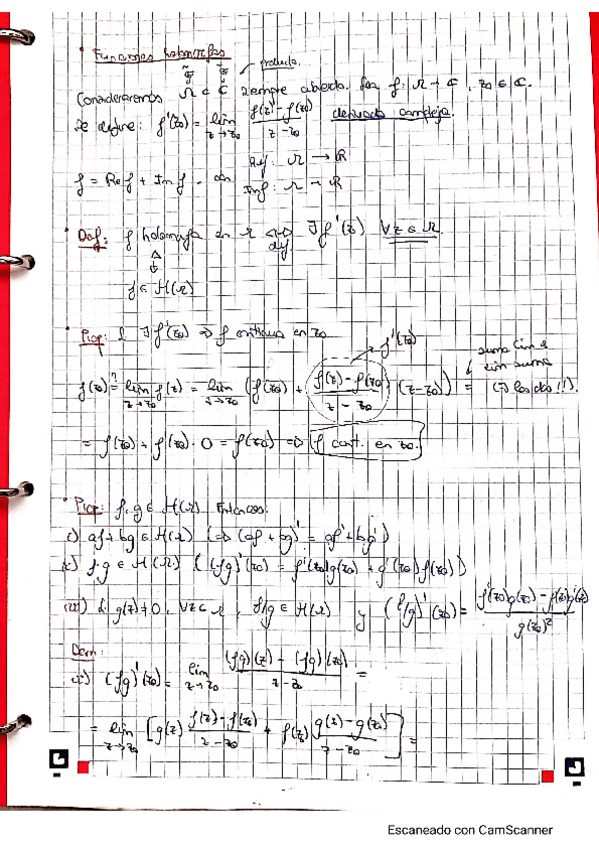 • Funciones holomorfas
Consideraremos Ω ⊂ ℂ siempre abierto. Sea f: Ω → ℂ, z₀ ∈ ℂ.
Se define: f'(z₀) = lim_{z→z₀} (f(z) - f(z₀))/(z - z₀) derivada compleja.
f = Re f + Im f. con Re f: Ω → ℝ
Im f: Ω → ℝ
• Def: f holomorfa en Ω ⟺_{def} ∃ f'(z) ∀z ∈ Ω.
f ∈ H(Ω)
• Prop: ∃ f'(z₀) ⇒ f continua en z₀
→ f'(z₀)
suma lim es lim suma
f(z₀) =? lim_{z→z₀} f(z) = lim_{z→z₀} (f(z₀) + (f(z) - f(z₀))/(z - z₀) (z - z₀)) = (∃ los dos!!).
= f(z₀) + f'(z₀) · 0 = f(z₀) ⇒ f cont. en z₀.
• Prop: f, g ∈ H(Ω) Entonces:
i) af + bg ∈ H(Ω) (⇒ (af + bg)' = af' + bg')
ii) f·g ∈ H(Ω) ((fg)'(z₀) = f'(z₀)g(z₀) + g'(z₀)f(z₀))
iii) g(z) ≠ 0, ∀z ∈ Ω, f/g ∈ H(Ω) y (f/g)'(z₀) = (f'(z₀)g(z₀) - f(z₀)g'(z₀))/g(z₀)²
Dem:
ii) (fg)'(z₀) = lim_{z→z₀} ((fg)(z) - (fg)(z₀))/(z - z₀) =
= lim_{z→z₀} [g(z) (f(z) - f(z₀))/(z - z₀) + f(z₀) (g(z) - g(z₀))/(z - z₀)] =
Escaneado con CamScanner